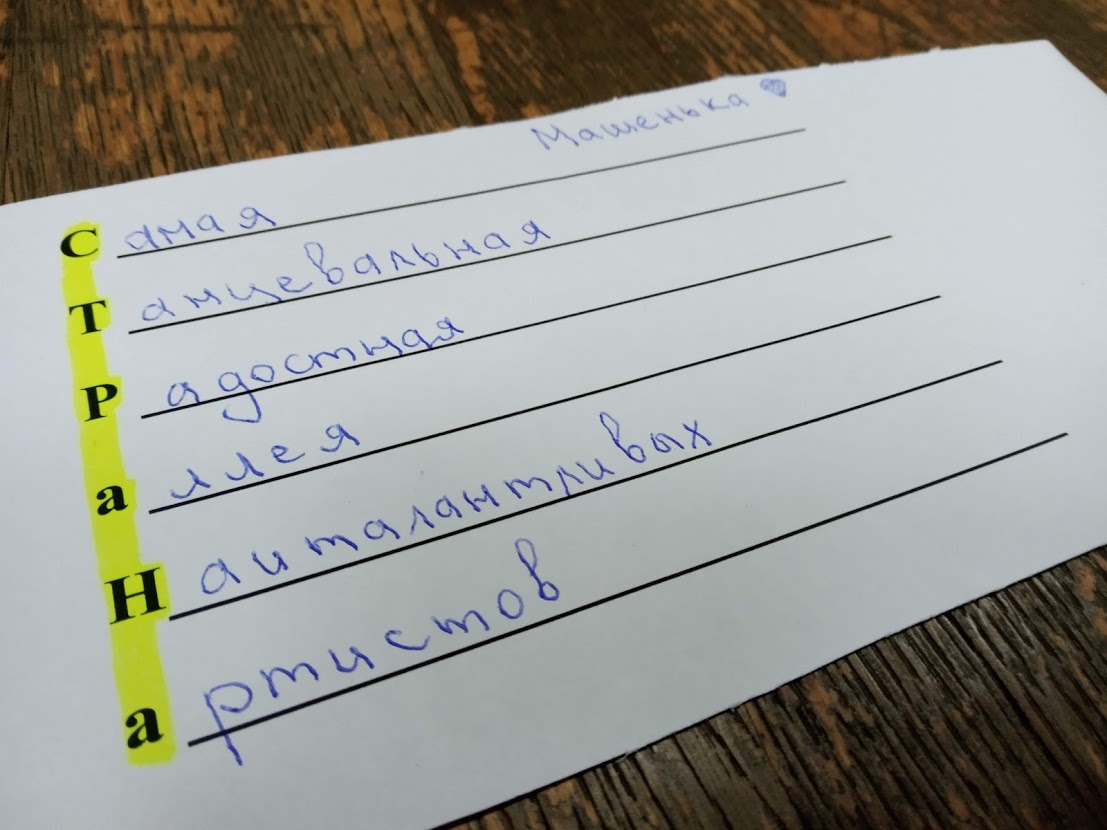 Машенька
Самая
Танцевальная
Радостная
аллея
Наиталантривых
артистов